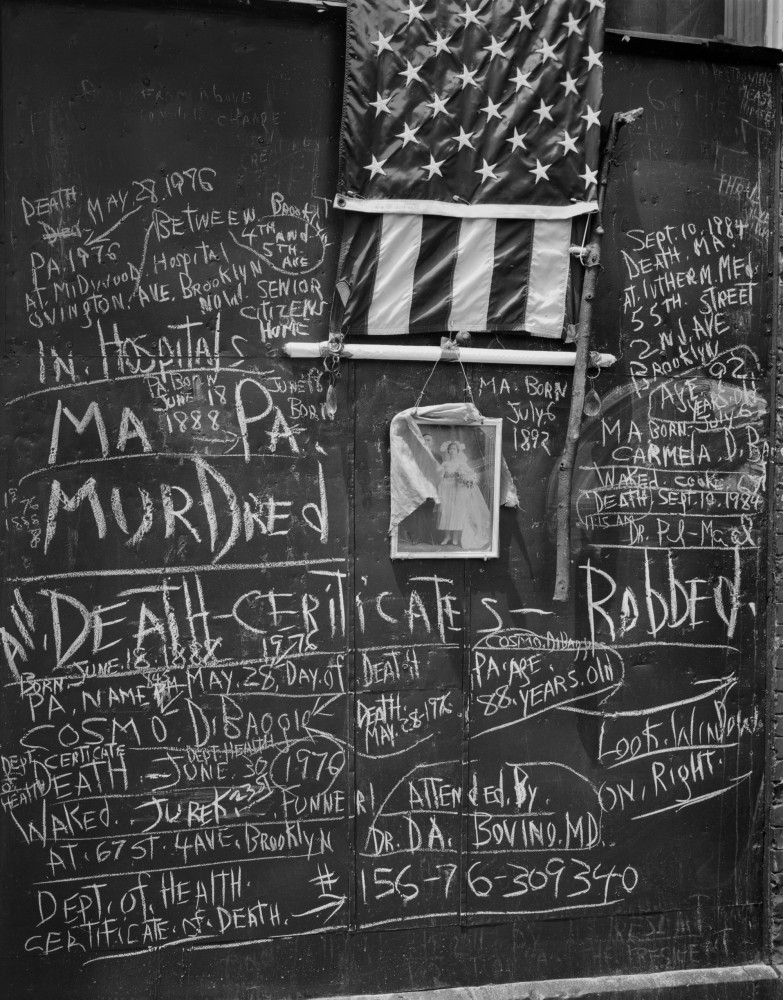 DEATH MAY 28, 1976
Died
PA. 1976
BETWEEN
4TH AND
5TH
AVE
AT. MIDWOOD Hospital
OVINGTON. AVE. BROOKLYN
NOW. SENIOR
CITIZENS
HOME
IN. HospitalS
PA BORN
JUNE 18
1888
JUNE 18
BORN
MA PA.
MURDREd
All. DEATH-CERTiCATES - RobbEd.
BORN. JUNE. 18. 1888 1976
MAY. 28, DAY. of DEATH
PA. NAME
COSMO. DiBAggio
DEPT. HEALTH
CERTIFICATE
DEATH - JUNE. 30 1976
DEPT
of
HEALTH
WAKED. JUREK FUNNERl
AT. 67 ST. 4 AVE. BROOKLYN
DEPT. of. HEALTH. # 156-76-309340
CERTIFICATE. of. DEATH.
MA. BORN
July 6
1892
PA. AGE.
88. YEARS. Old
DEATH.
MAY. 28-1976
ATTENded. By.
DR. D A. BOVINO. MD
SEPT. 10. 1984
DEATH. MA.
AT. LUTHERM. MEd.
55TH. STREET
2 Nd AVE
BROOKLYN
92
YEARS. Old
MA BORN- July-6-
CARMELA. D. BA
WAKED. COOKE.
DEATH. SEPT. 10. 1984
LOOK. WINDOW
ON. Right.